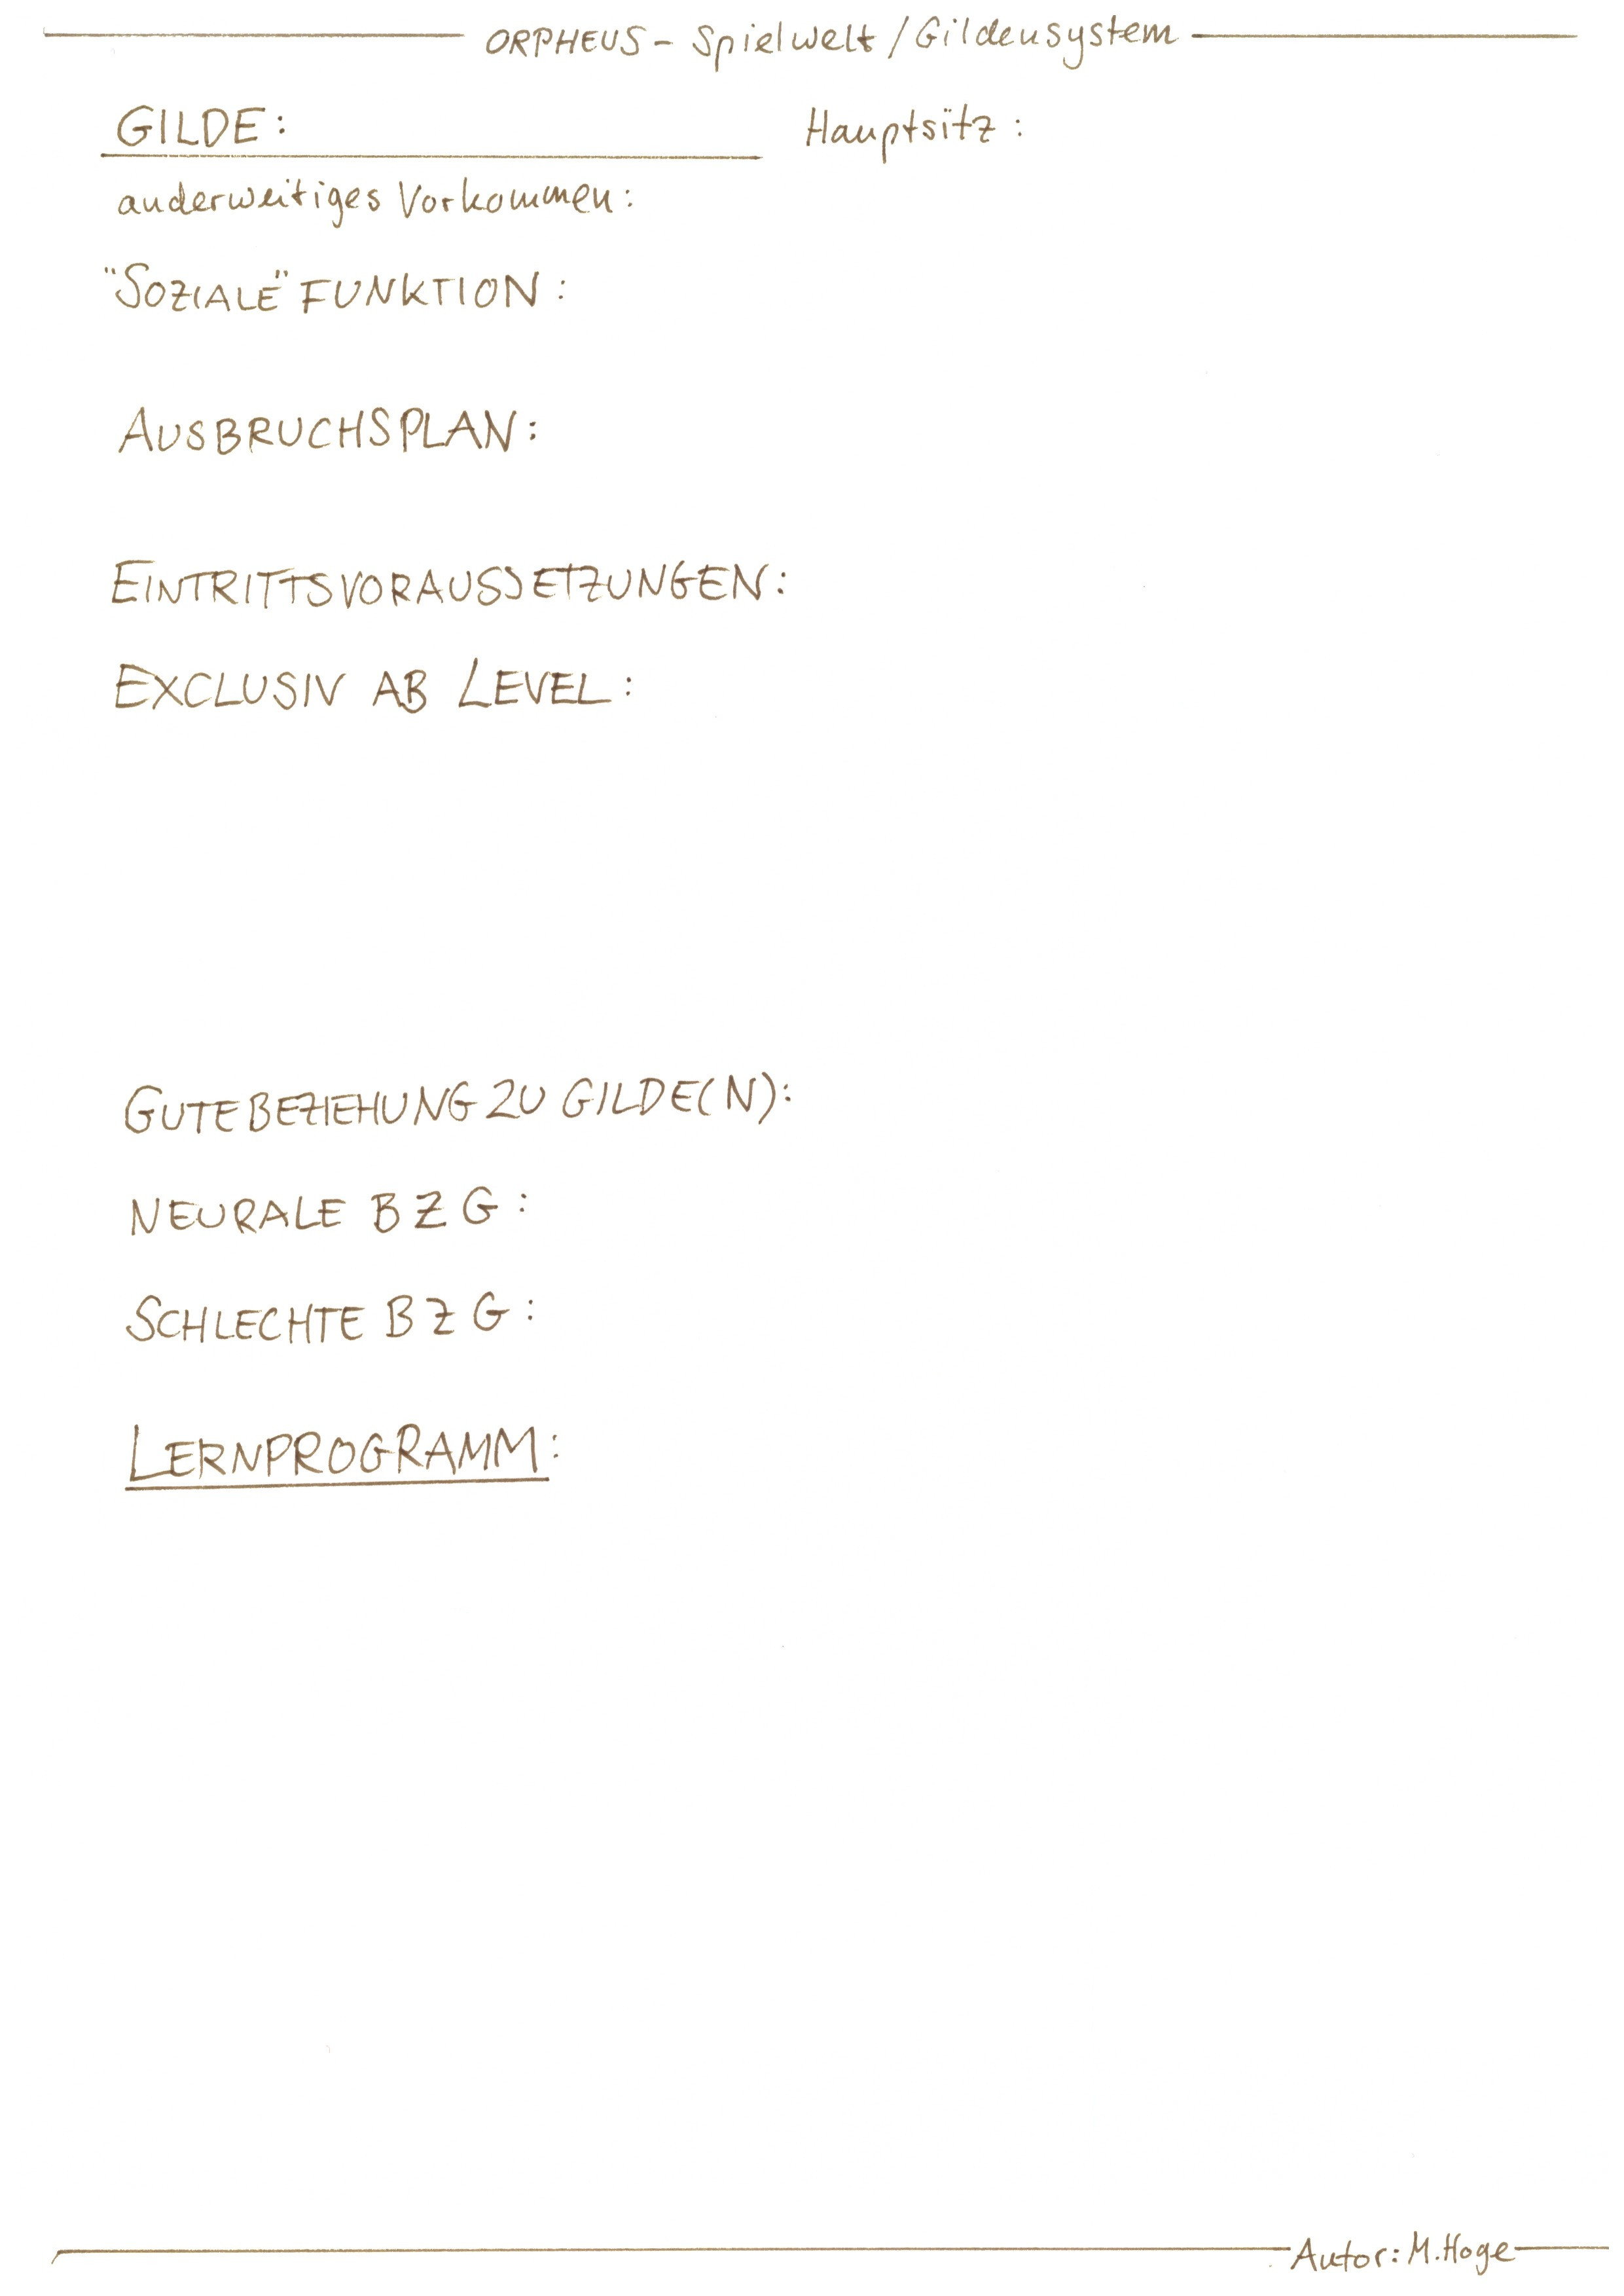 ORPHEUS - Spielwelt / Gildensystem
GILDE: Hauptsitz:
anderweitiges Vorkommen:
"SOZIALE" FUNKTION:
AUSBRUCHSPLAN:
EINTRITTSVORAUSSETZUNGEN:
EXCLUSIV AB LEVEL:
GUTE BEZIEHUNG ZU GILDE(N):
NEURALE B Z G:
SCHLECHTE B Z G:
LERNPROGRAMM:
Autor: M. Hoge